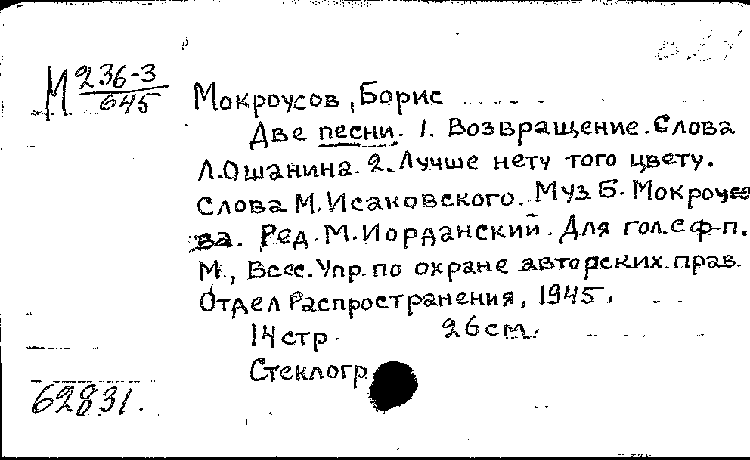 М 236-3
645
Мокроусов, Борис
Две песни. 1. Возвращение. Слова
Л. Ошанина. 2. Лучше нету того цвету.
Слова М. Исаковского. Муз Б. Мокроусо
ва. Ред. М. Иорданский. Для гол. с ф-п.
М., Всес. Упр. по охране авторских прав.
Отдел Распространения, 1945.
14 стр. 26 см.
Стеклогр
62831.